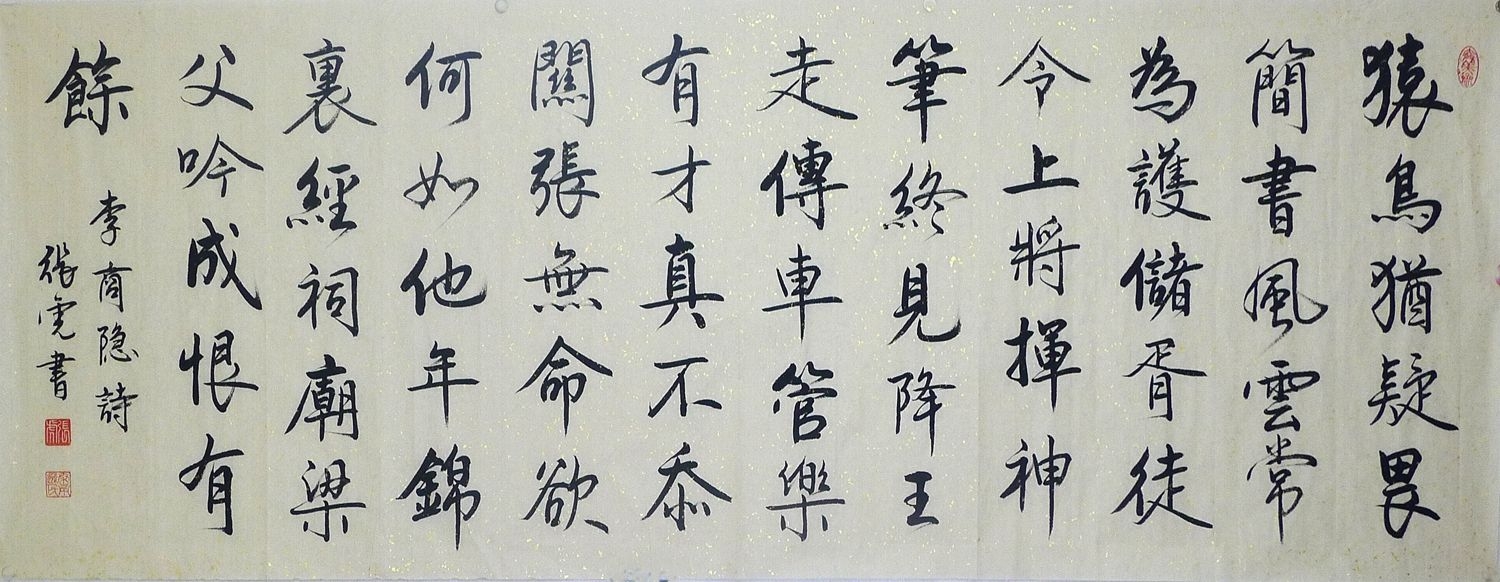 猿鳥猶疑畏
簡書風雲常
為護儲胥徒
令上將揮神
筆終見降王
走傳車管樂
有才真不忝
關張無命欲
何如他年錦
裏經祠廟梁
父吟成恨有
餘
李商隐詩
張虎書